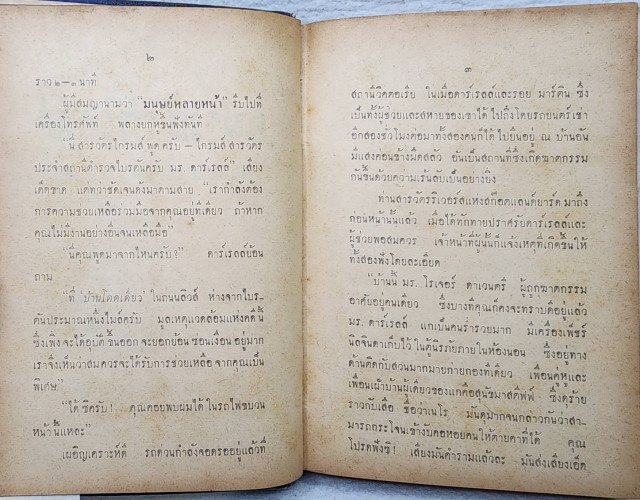 ๒
ราว ๒–๓ นาที
ผู้มีสมญานามว่า “มนุษย์หลายหน้า” รีบไปที่
เครื่องโทรศัพท์ พลางยกหูขึ้นฟังทันที
“นี่ สารวัตรไกรมส์ พูด ครับ – ไกรมส์ สารวัตร
ประจำสถานีตำรวจไบรตันครับ มร. ดาร์เรลล์” เสียง
เด็ดขาด แต่ทว่าชัดเจนดังมาตามสาย “เรากำลังต้อง
การความช่วยเหลือร่วมมือจากคุณอยู่ทีเดียว ถ้าหาก
คุณไม่มีงานอย่างอื่นจนเหลือมือ”
“นี่คุณพูดมาจากไหนครับ?” ดาร์เรลล์ย้อน
ถาม
“ที่ ‘บ้านโดดเดี่ยว’ ในถนนลิวส์ ห่างจากไบร-
ตันประมาณหนึ่งไมล์ครับ มูลเหตุแวดล้อมแห่งคดีนี้
ซึ่งเพิ่งจะได้อุบัติขึ้นออกจะยอกย้อนซ่อนเงื่อนอยู่มาก
เราจึงเห็นว่าสมควรจะได้รับการช่วยเหลือจากคุณเป็น
พิเศษ”
“ได้ซิครับ! คุณคอยพบผมได้ในรถไฟขบวน
หน้านี้แหละ”
เผอิญเคราะห์ดี รถด่วนกำลังจอดรออยู่แล้วที่
๓
สถานีวิคตอเรีย ในเมื่อดาร์เรลล์และรอย มาร์ติน ซึ่ง
เป็นทั้งผู้ช่วยและสหายของเขาได้ไปถึงโดยรถยนต์เช่า
อีกสองชั่วโมงต่อมาทั้งสองคนก็ได้ไปยืนอยู่ ณ บ้านอัน
มีแสงค่อนข้างมืดสลัว อันเป็นสถานที่ซึ่งเกิดฆาตกรรม
กันขึ้นด้วยความเร้นลับเป็นอย่างยิ่ง
ท่านสารวัตรริเวอร์สแห่งสก๊อตแลนด์ยาร์ดมาถึง
ก่อนหน้านั้นแล้ว เมื่อได้ทักทายปราศรัยดาร์เรลล์และ
ผู้ช่วยพอสมควร เจ้าหน้าที่ผู้นั้นก็แจ้งเหตุที่เกิดขึ้นให้
ทั้งสองฟังโดยละเอียด
“บ้านนี้ มร. โรเจอร์ ดาเวนตรี ผู้ถูกฆาตกรรม
อาศัยอยู่คนเดียว ซึ่งบางทีคุณก็คงจะทราบดีอยู่แล้ว
มร. ดาร์เรลล์ แกเป็นคนร่ำรวยมาก มีเครื่องเพ็ชร์
นิลจินดาเก็บไว้ในตู้นิรภัยภายในห้องนอน ซึ่งอยู่ทาง
ด้านติดกับสวนมากมายก่ายกองทีเดียว เพื่อนคู่หูและ
เพื่อนเฝ้าบ้านผู้เดียวของแกคือสุนัขมาสตีฟฟ์ ซึ่งดุร้าย
ราวกับเสือ ชื่อว่าเนโร มันดุมากจนกล่าวกันว่าสา-
มารถกระโจนเข้างับคอหอยคนให้ตายคาที่ได้ คุณ
โปรดฟังซิ! เสียงมันคำรามแล้วละ มันส่งเสียงเอ็ด